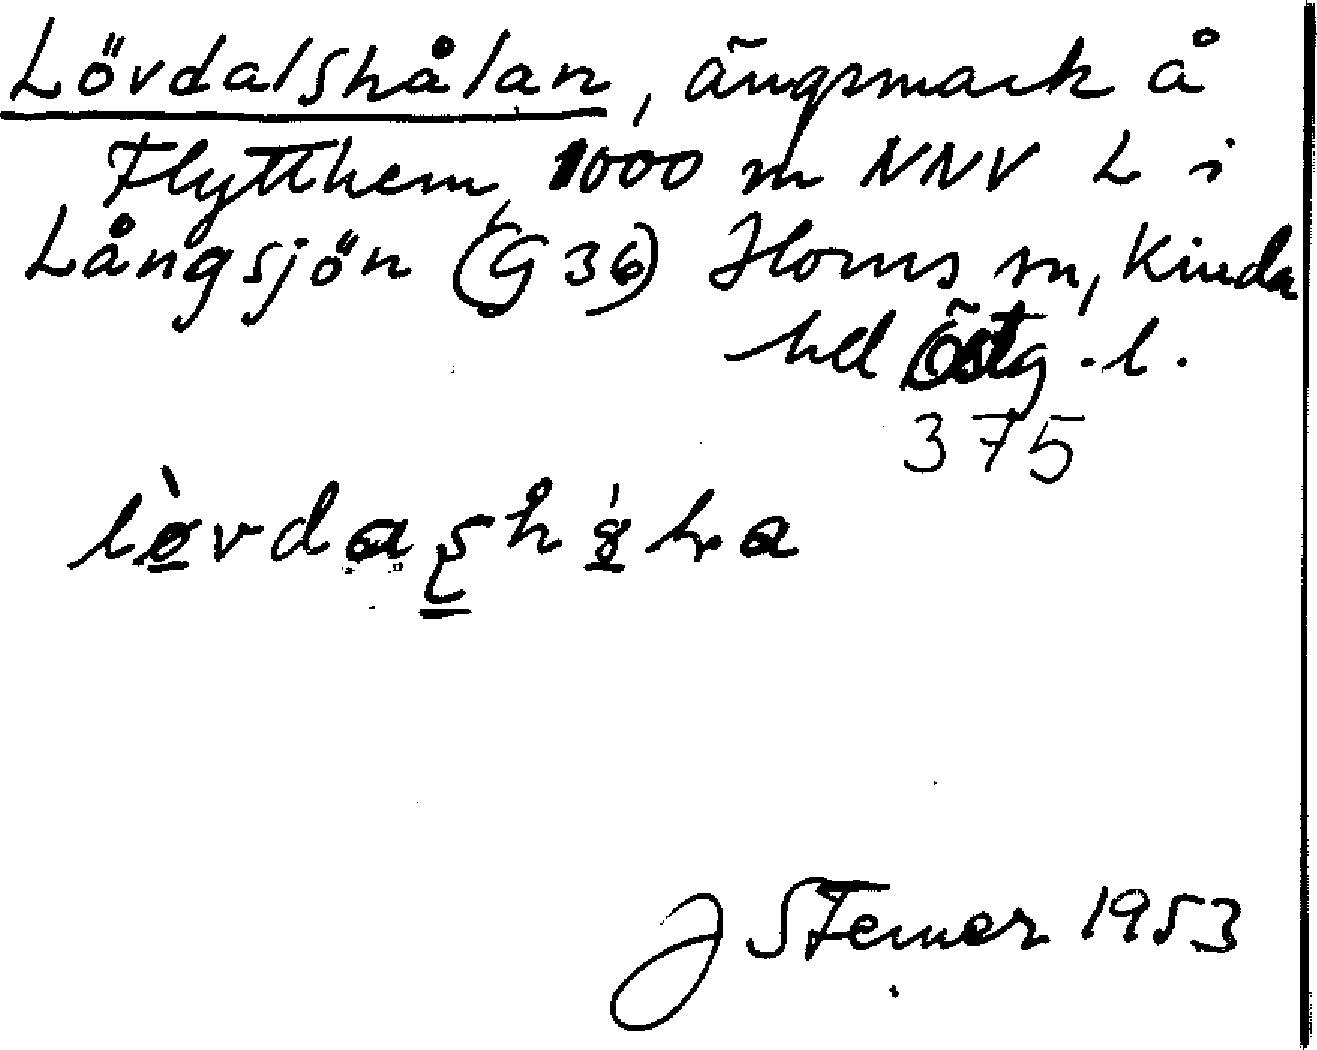 Lövdalshålan, ängsmark å
Flytthem, 1000 m NNV L i
Långsjön (G 36) Horns sn, Kinda
hd Östg.l.
375
J Sterner 1953